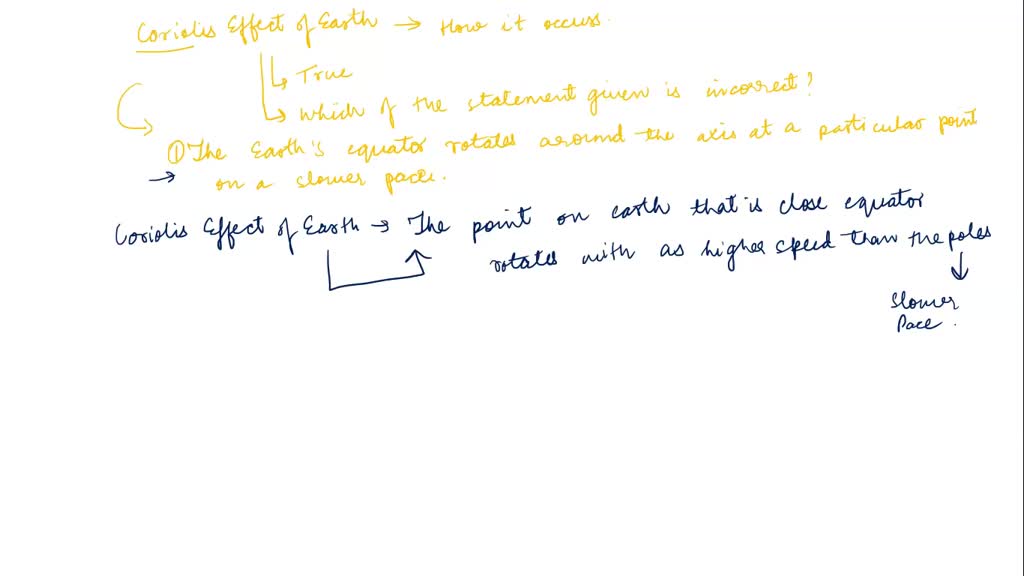 Coriolis Effect of Earth → How it occurs.
↳ True
↳ Which of the statement given is incorrect?
① The Earth's equator rotates around the axis at a particular point
→ on a slower pace.
Coriolis Effect of Earth → The point on earth that is close equator
rotates with as higher speed than the poles
Slower
Pace.